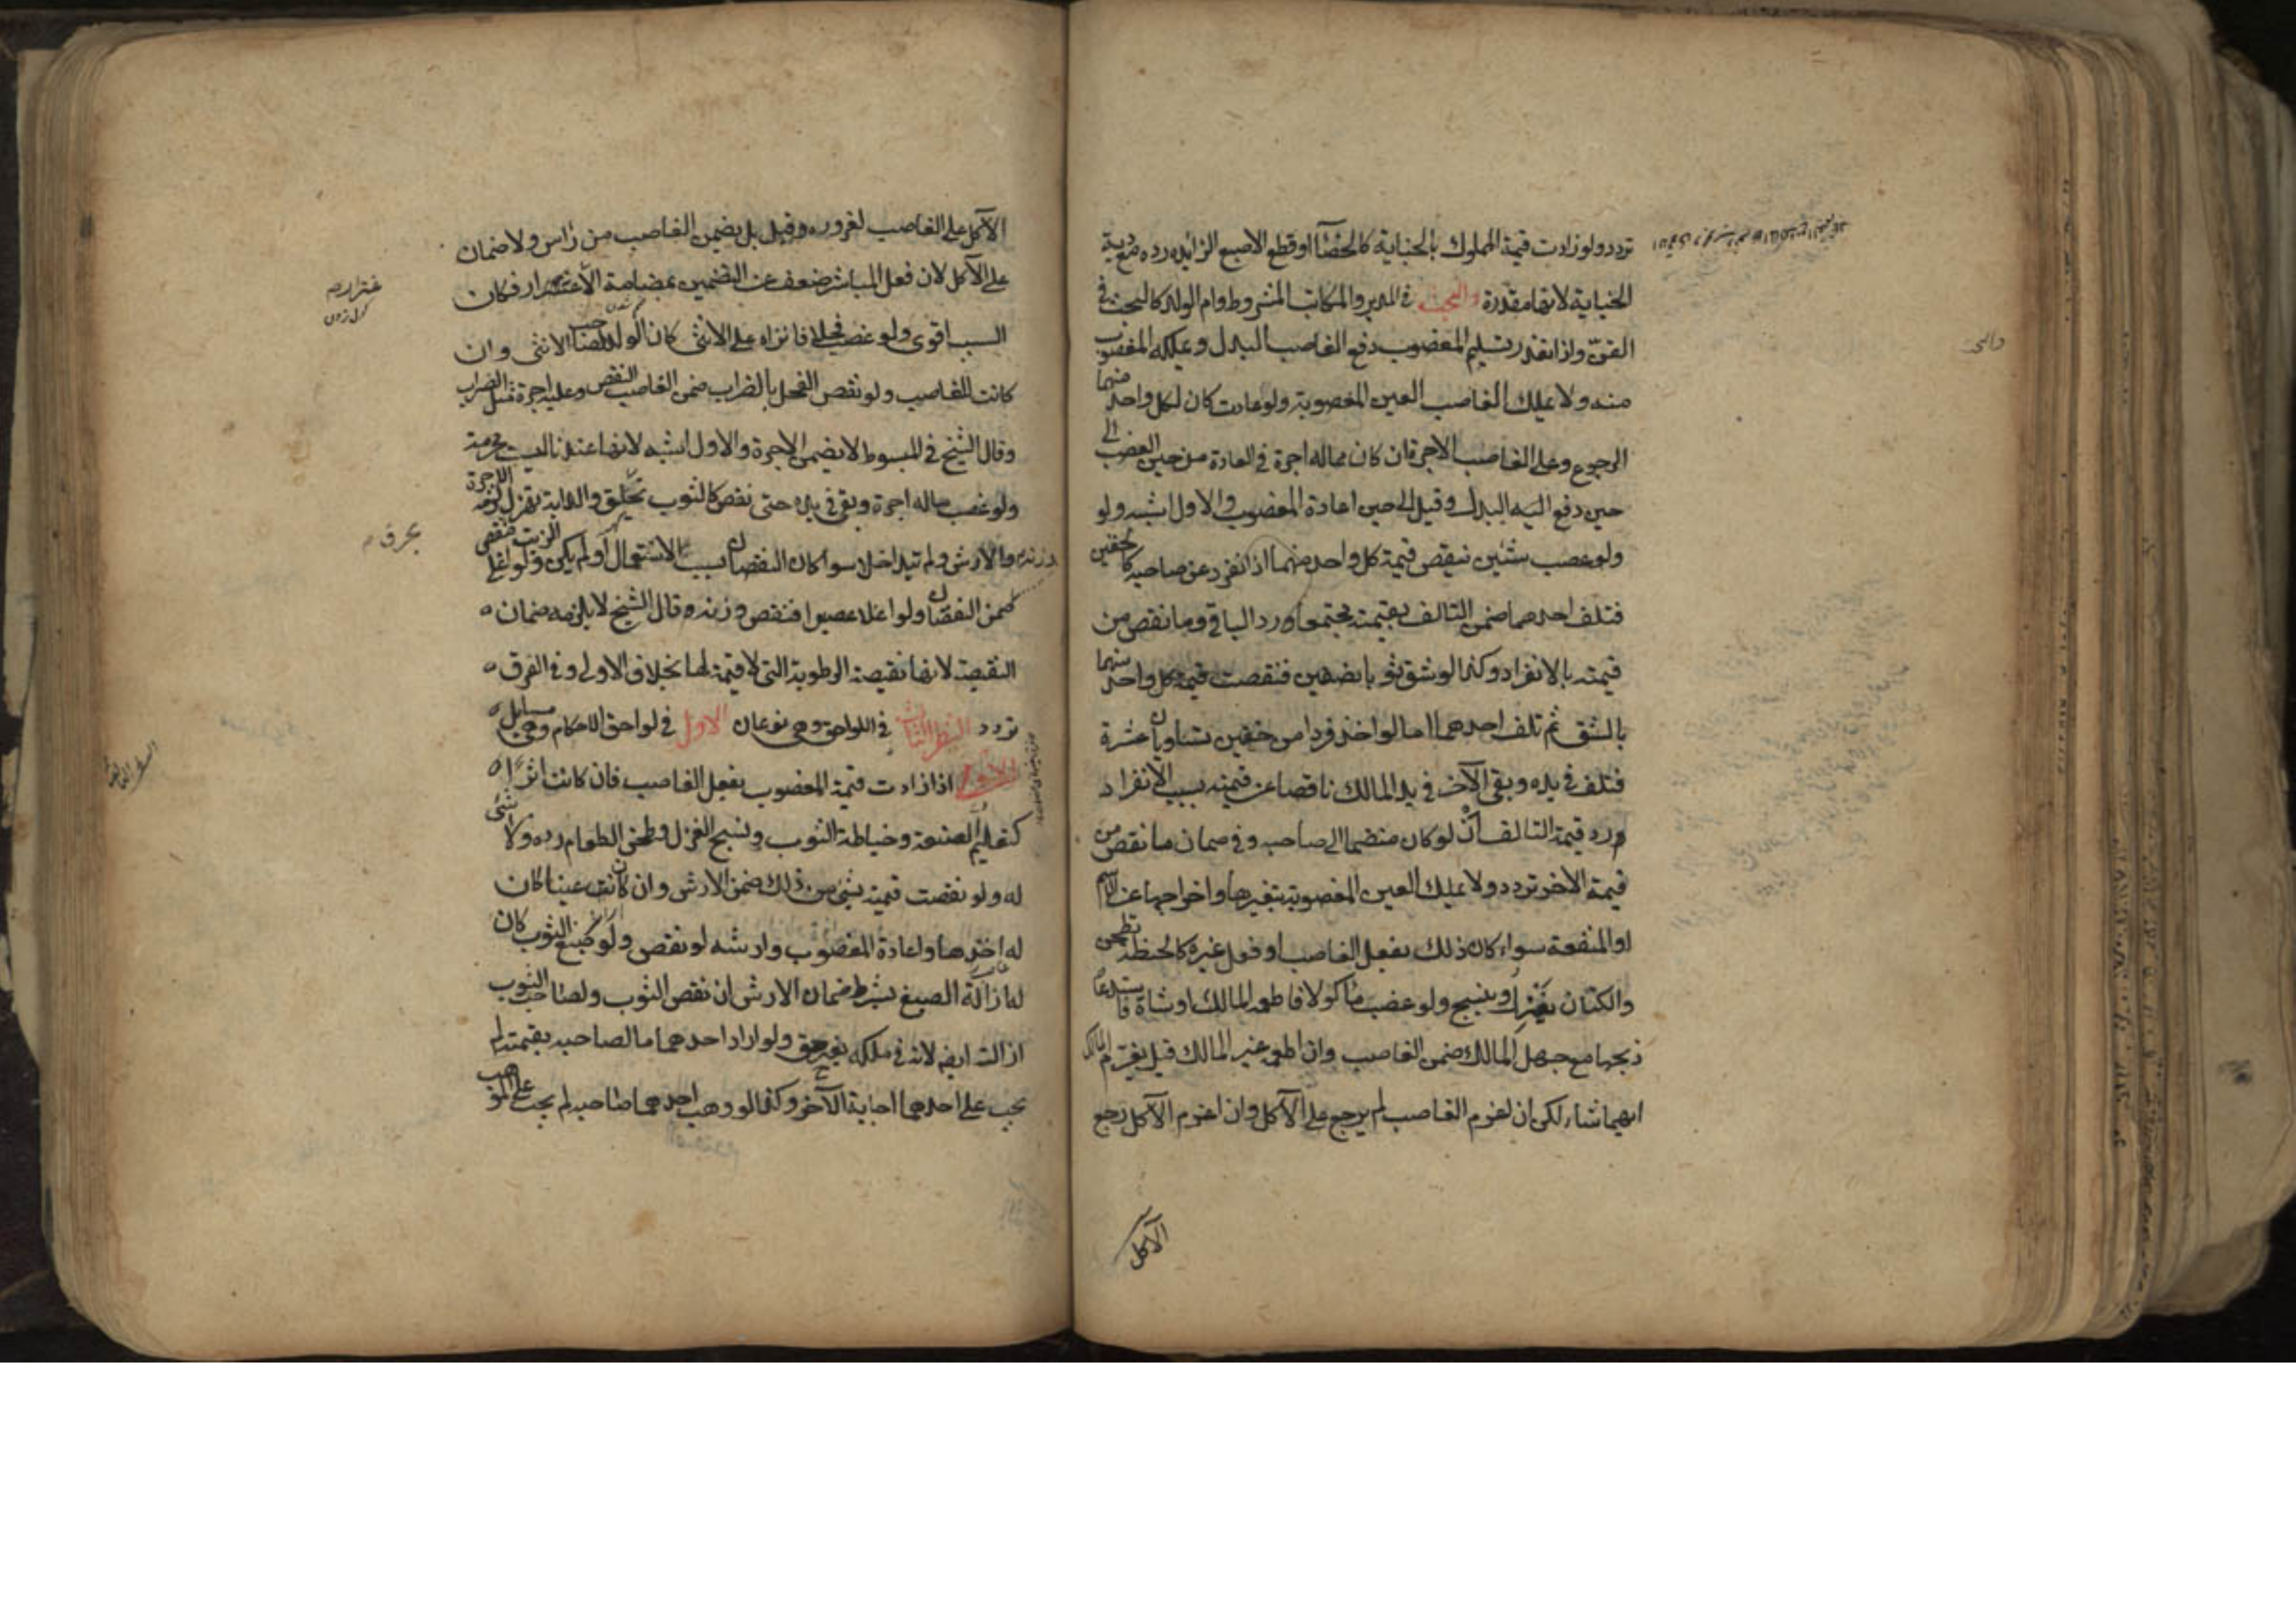 تردد ولو زادت قيمة المملوك بالجناية كالخصآ او قطع الاصبع الزائده رده مع دية
الجناية لانها مقدرة والبحث في المدبر والمكاتب المشروط وام الولد كالبحث في
القنّ واذا تعذر تسليم المغصوب دفع الغاصب البدل ويملكه المغصوب
منه ولا يملك الغاصب العين المغصوبة ولو عادت كان لكل واحد منهما
الرجوع وعلى الغاصب الاجرة ان كان مما له اجرة في العادة من حين الغصب الى
حين دفع اليه البدل وقيل الى حين اعادة المغصوب والاول اشبه ولو
ولو غصب شئين تنقص قيمة كل واحد منهما اذا انفرد عن صاحبه كالخفين
فتلف احدهما ضمن التالف بقيمته مجتمعا ورد الباقي وما نقص من
قيمته بالانفراد وكذا لو شق ثوبا نصفين فنقصت قيمة كل واحد منهما
بالشق ثم تلف احدهما اما لو اخذ فردا من خفين يساويان عشرة
فتلف في يده وبقي الآخر في يد المالك ناقصا عن قيمته بسبب الانفراد
ورد قيمة التالف ان لو كان منضما الى صاحبه وفي ضمان ما نقص من
قيمة الاخر تردد ولا يملك العين المغصوبة بتغيرها واخراجها عن الاسم
او المنفعة سواء كان ذلك بفعل الغاصب او فعل غيره كالحنطة تطحن
والكتان يغزل وينسج ولو غصب ماكولا فاطعمه المالك او شاة فاستدعاه
ذبحها مع جهل المالك ضمن الغاصب وان اطعمه غير المالك قيل يغرّم المالك
ايهما شاء لكن ان اغرم الغاصب لم يرجع على الآكل وان اغرم الآكل رجع
الآكل
الآكل على الغاصب لغروره وقيل بل يضمن الغاصب من راس ولا ضمان
على الآكل لان فعل المباشر ضعف عن التضمين بمضامة الاغترار فكان
السبب اقوى ولو غصب فحلا فانزاه على الانثى كان الولد لصاحب الانثى وان
كانت للغاصب ولو نقص الفحل بالضراب ضمن الغاصب النقص وعليه اجرة مثل الضراب
وقال الشيخ في المبسوط لا يضمن الاجرة والاول اشبه لانها عندنا ليست محرمة
ولو غصب ما له اجرة وبقي في يده حتى نقص كالثوب تخلق والدابة تهزل لزمه الاجرة
والارش ولم يتداخلا سوا كان النقصان بسبب الاستعمال او لم يكن ولو اغلى الزيت فنقص
ضمن النقصان ولو اغلا عصيرا فنقص وزنه قال الشيخ لا يلزمه ضمان
النقيصة لانها نقيصة الرطوبة التي لا قيمة لها بخلاف الاولى وفي الفرق
تردد النظر الثالث في اللواحق وهي نوعان الاول في لواحق الاحكام وهي مسايل
الاولى اذا زادت قيمة المغصوب بفعل الغاصب فان كانت اثرًا
كتعليم الصنعة وخياطة الثوب ونسج الغزل وطحن الطعام رده ولا شئ
له ولو نقصت قيمته بشئ من ذلك ضمن الارش وان كانت عينا كان
له اخذها واعادة المغصوب وارشه لو نقص ولو صبغ الثوب كان
له ازالة الصبغ بشرط ضمان الارش ان نقص الثوب ولصاحب الثوب
ازالته ايضا لانه في ملكه بغير حق ولو اراد احدهما ما لصاحبه بقيمته لم
يجب على احدهما اجابة الآخر وكذا لو وهب احدهما صاحبه لم يجب على الموهوب